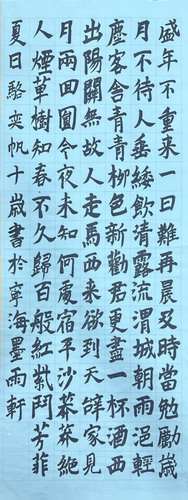 盛年不重來一日難再晨及時當勉勵歲
月不待人垂緌飲清露流渭城朝雨浥輕
塵客舍青青柳色新勸君更盡一杯酒西
出陽關無故人走馬西來欲到天辭家見
月兩回圓今夜未知何處宿平沙莽莽絕
人煙草樹知春不久歸百般紅紫鬥芳菲
夏日駱奕帆十歲書於寧海墨雨軒